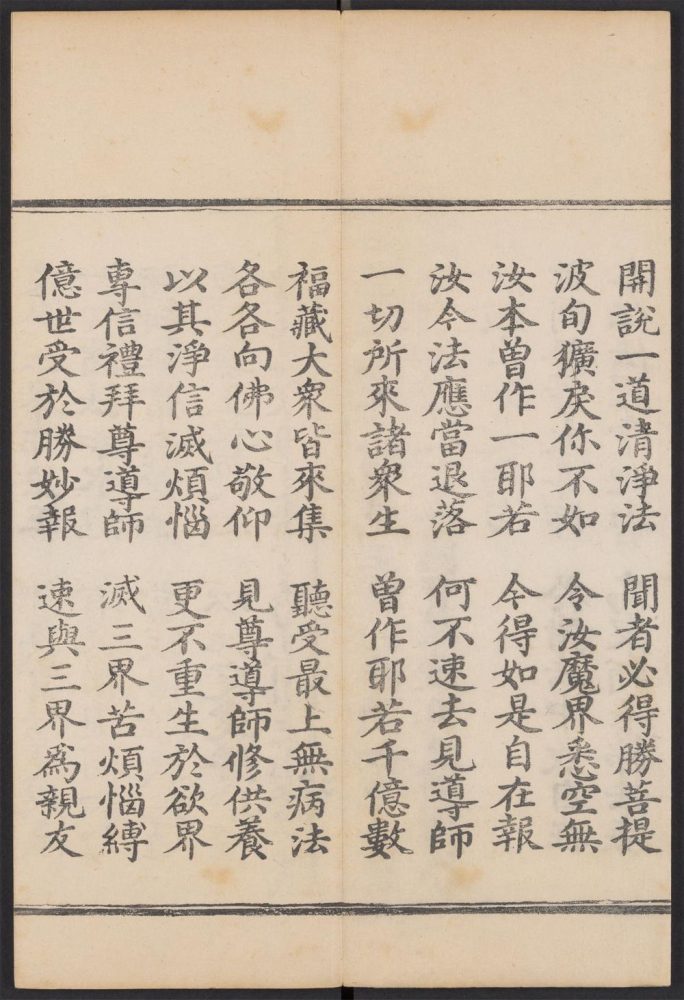 開說一道清淨法　聞者必得勝菩提
波旬獷戾你不如　令汝魔界悉空無
汝本曾作一耶若　今得如是自在報
汝今法應當退落　何不速去見導師
一切所來諸衆生　曾作耶若千億數
福藏大衆皆來集　聽受最上無病法
各各向佛心敬仰　見尊導師修供養
以其淨信滅煩惱　更不重生於欲界
專信禮拜尊導師　滅三界苦煩惱縛
億世受於勝妙報　速與三界爲親友